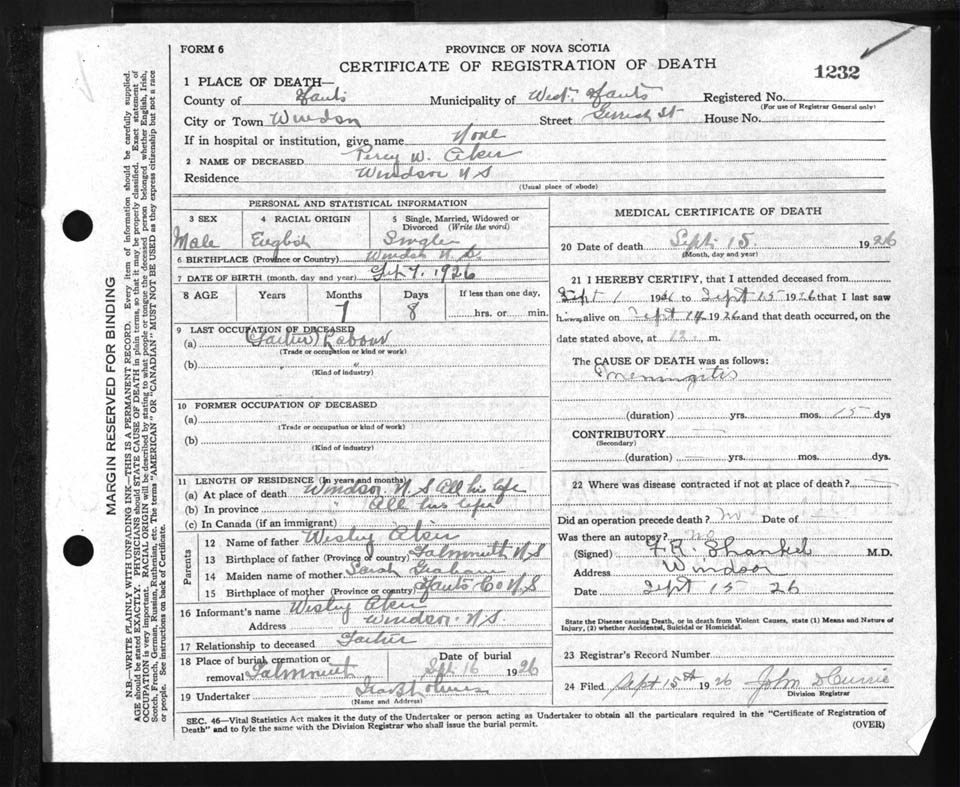 FORM 6
PROVINCE OF NOVA SCOTIA
CERTIFICATE OF REGISTRATION OF DEATH
1232
1 PLACE OF DEATH—
County of Hants Municipality of West Hants Registered No.
(For use of Registrar General only)
City or Town Windsor Street Gerrish St House No.
If in hospital or institution, give name None
2 NAME OF DECEASED Percy W. Aker
Residence Windsor N S
(Usual place of abode)
PERSONAL AND STATISTICAL INFORMATION
3 SEX 4 RACIAL ORIGIN 5 Single, Married, Widowed or Divorced (Write the word)
Male English Single
6 BIRTHPLACE (Province or Country) Windsor N.S.
7 DATE OF BIRTH (month, day and year) 7, 1926
8 AGE Years Months Days If less than one day,
8 hrs. or min.
9 LAST OCCUPATION OF DECEASED
(a) (Father) Labour
(Trade or occupation or kind or work)
(b) " "
(Kind of industry)
10 FORMER OCCUPATION OF DECEASED
(a)
(Trade or occupation or kind of work)
(b)
(Kind of industry)
11 LENGTH OF RESIDENCE (In years and months)
(a) At place of death Windsor N S All his life
(b) In province All his life
(c) In Canada (if an immigrant)
Parents
12 Name of father Wesley Aker
13 Birthplace of father (Province or country) Falmouth N S
14 Maiden name of mother Sarah Graham
15 Birthplace of mother (Province or country) Hants Co N.S
16 Informant's name Wesley Aker
Address Windsor N.S
17 Relationship to deceased Father
18 Place of burial, cremation or removal Falmouth Date of burial Sept. 16 1926
19 Undertaker
(Name and Address)
MEDICAL CERTIFICATE OF DEATH
20 Date of death Sept. 15. 1926
(Month, day and year)
21 I HEREBY CERTIFY, that I attended deceased from
Sept 1 1926 to Sept 15 1926 that I last saw
him alive on Sept 14 1926 and that death occurred, on the
date stated above, at 12 m.
The CAUSE OF DEATH was as follows:
Meningitis
(duration) yrs. mos. 15 dys
CONTRIBUTORY
(Secondary)
(duration) yrs. mos. dys.
22 Where was disease contracted if not at place of death?
Did an operation precede death? no Date of
Was there an autopsy? no
(Signed) F. R. Shankel M.D.
Address Windsor
Date Sept 15 26
State the Disease causing Death, or in death from Violent Causes, state (1) Means and Nature of
Injury, (2) whether Accidental, Suicidal or Homicidal.
23 Registrar's Record Number
24 Filed Sept 15th 1926 John D Currie
Division Registrar
SEC. 46—Vital Statistics Act makes it the duty of the Undertaker or person acting as Undertaker to obtain all the particulars required in the "Certificate of Registration of
Death" and to fyle the same with the Division Registrar who shall issue the burial permit. (OVER)
MARGIN RESERVED FOR BINDING
N.B.—WRITE PLAINLY WITH UNFADING INK—THIS IS A PERMANENT RECORD. Every item of information should be carefully supplied.
AGE should be stated EXACTLY. PHYSICIANS should STATE CAUSE OF DEATH in plain terms, so that it may be properly classified. Exact statement of
OCCUPATION is very important. RACIAL ORIGIN will be described by stating to what people or tongue the deceased person belonged whether English, Irish,
Scotch, French, German, Russian, Ruthenian, etc. The terms "AMERICAN" OR "CANADIAN" MUST NOT BE USED as they express citizenship but not a race
or people. See instructions on back of Certificate.